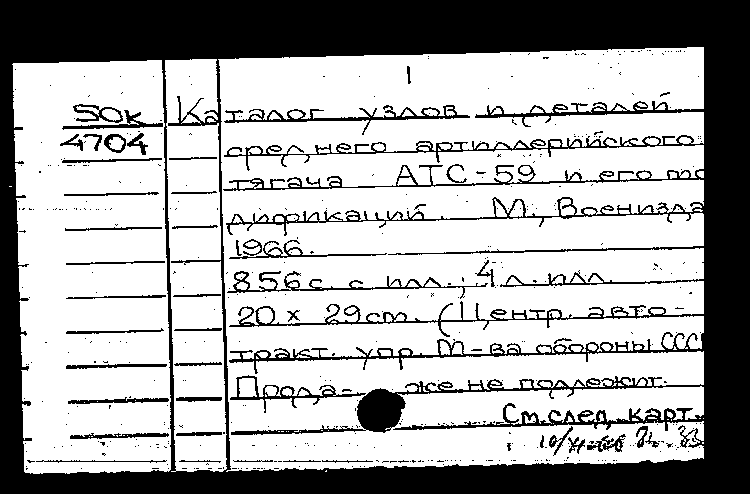 1
50к Каталог узлов и деталей
4704 среднего артиллерийского
тягача АТС-59 и его мо
дификаций. М., Военизда
1966.
856с. с илл.; 4 л. илл.
20 x 29см. (Центр. авто-
тракт. упр. М-ва обороны СССР
Прода- же не подлежит.
См.след. карт.